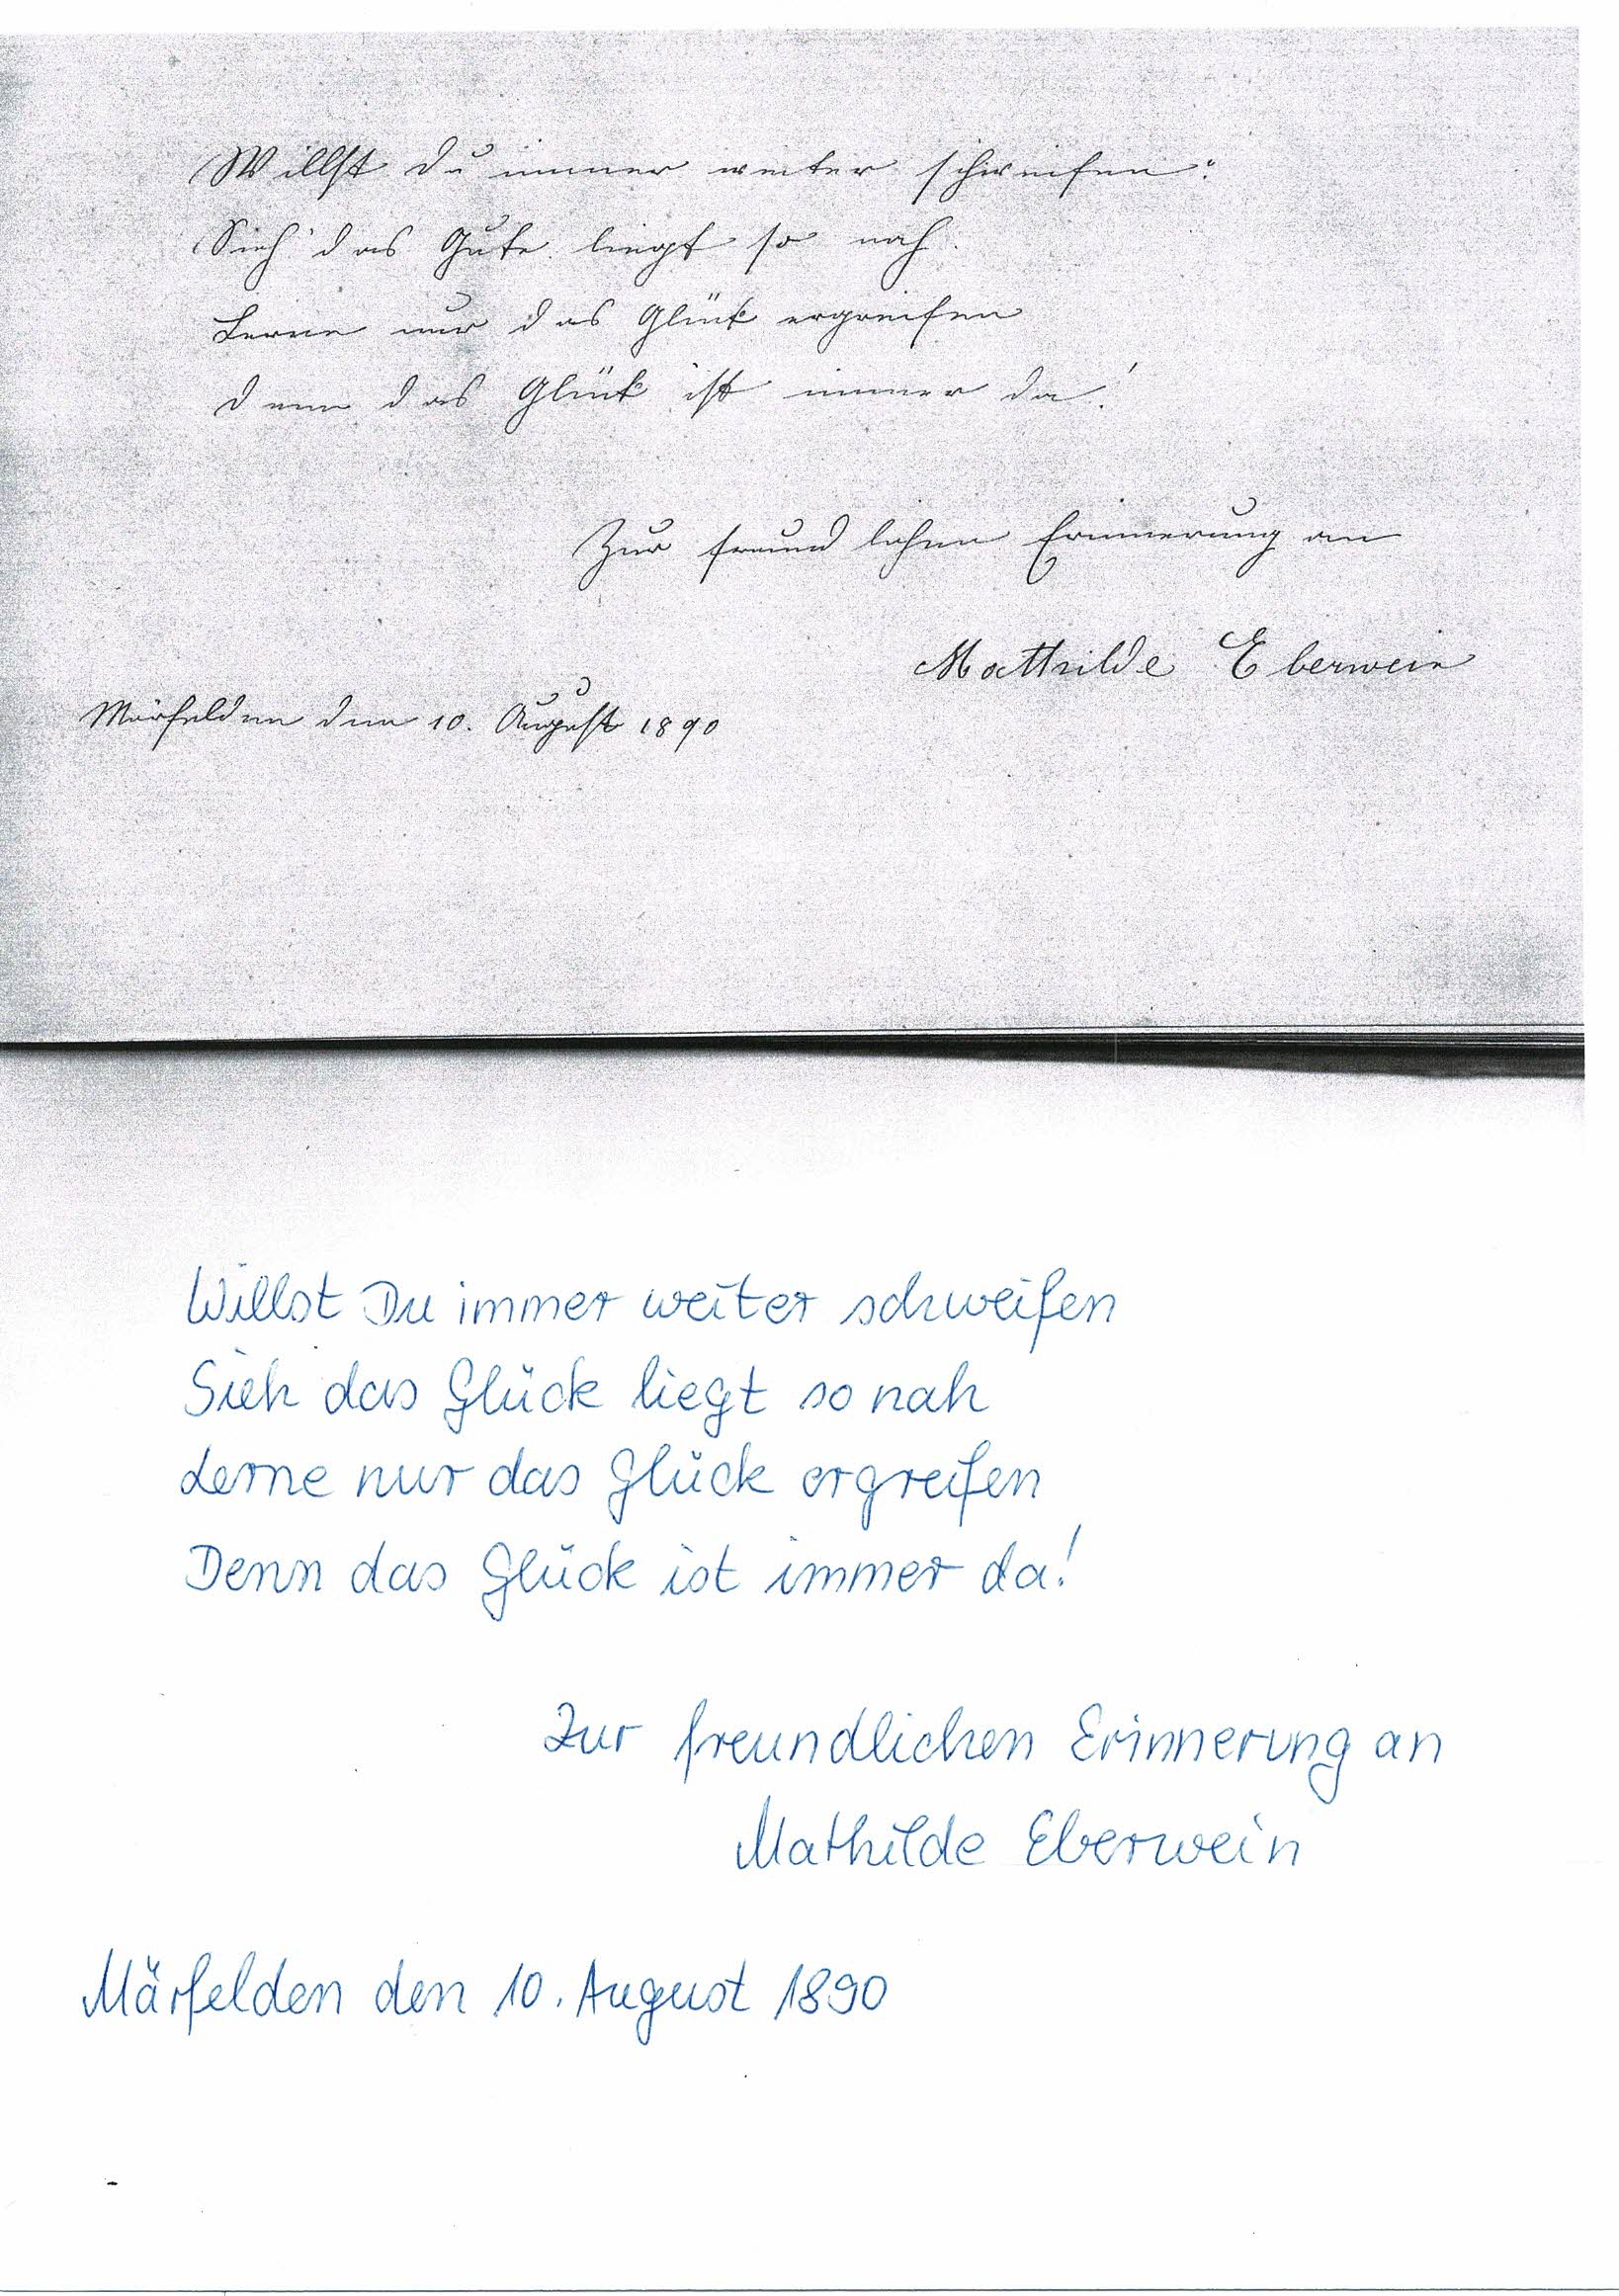 Willst du immer weiter schweifen?
Sieh' das Gute liegt so nah.
Lerne nur das Glück ergreifen
denn das Glück ist immer da!
Zur freundlichen Erinnerung an
Mathilde Eberwein
Mörfelden den 10. August 1890
Willst Du immer weiter schweifen
Sieh das Glück liegt so nah
Lerne nur das Glück ergreifen
Denn das Glück ist immer da!
Zur freundlichen Erinnerung an
Mathilde Eberwein
Märfelden den 10. August 1890